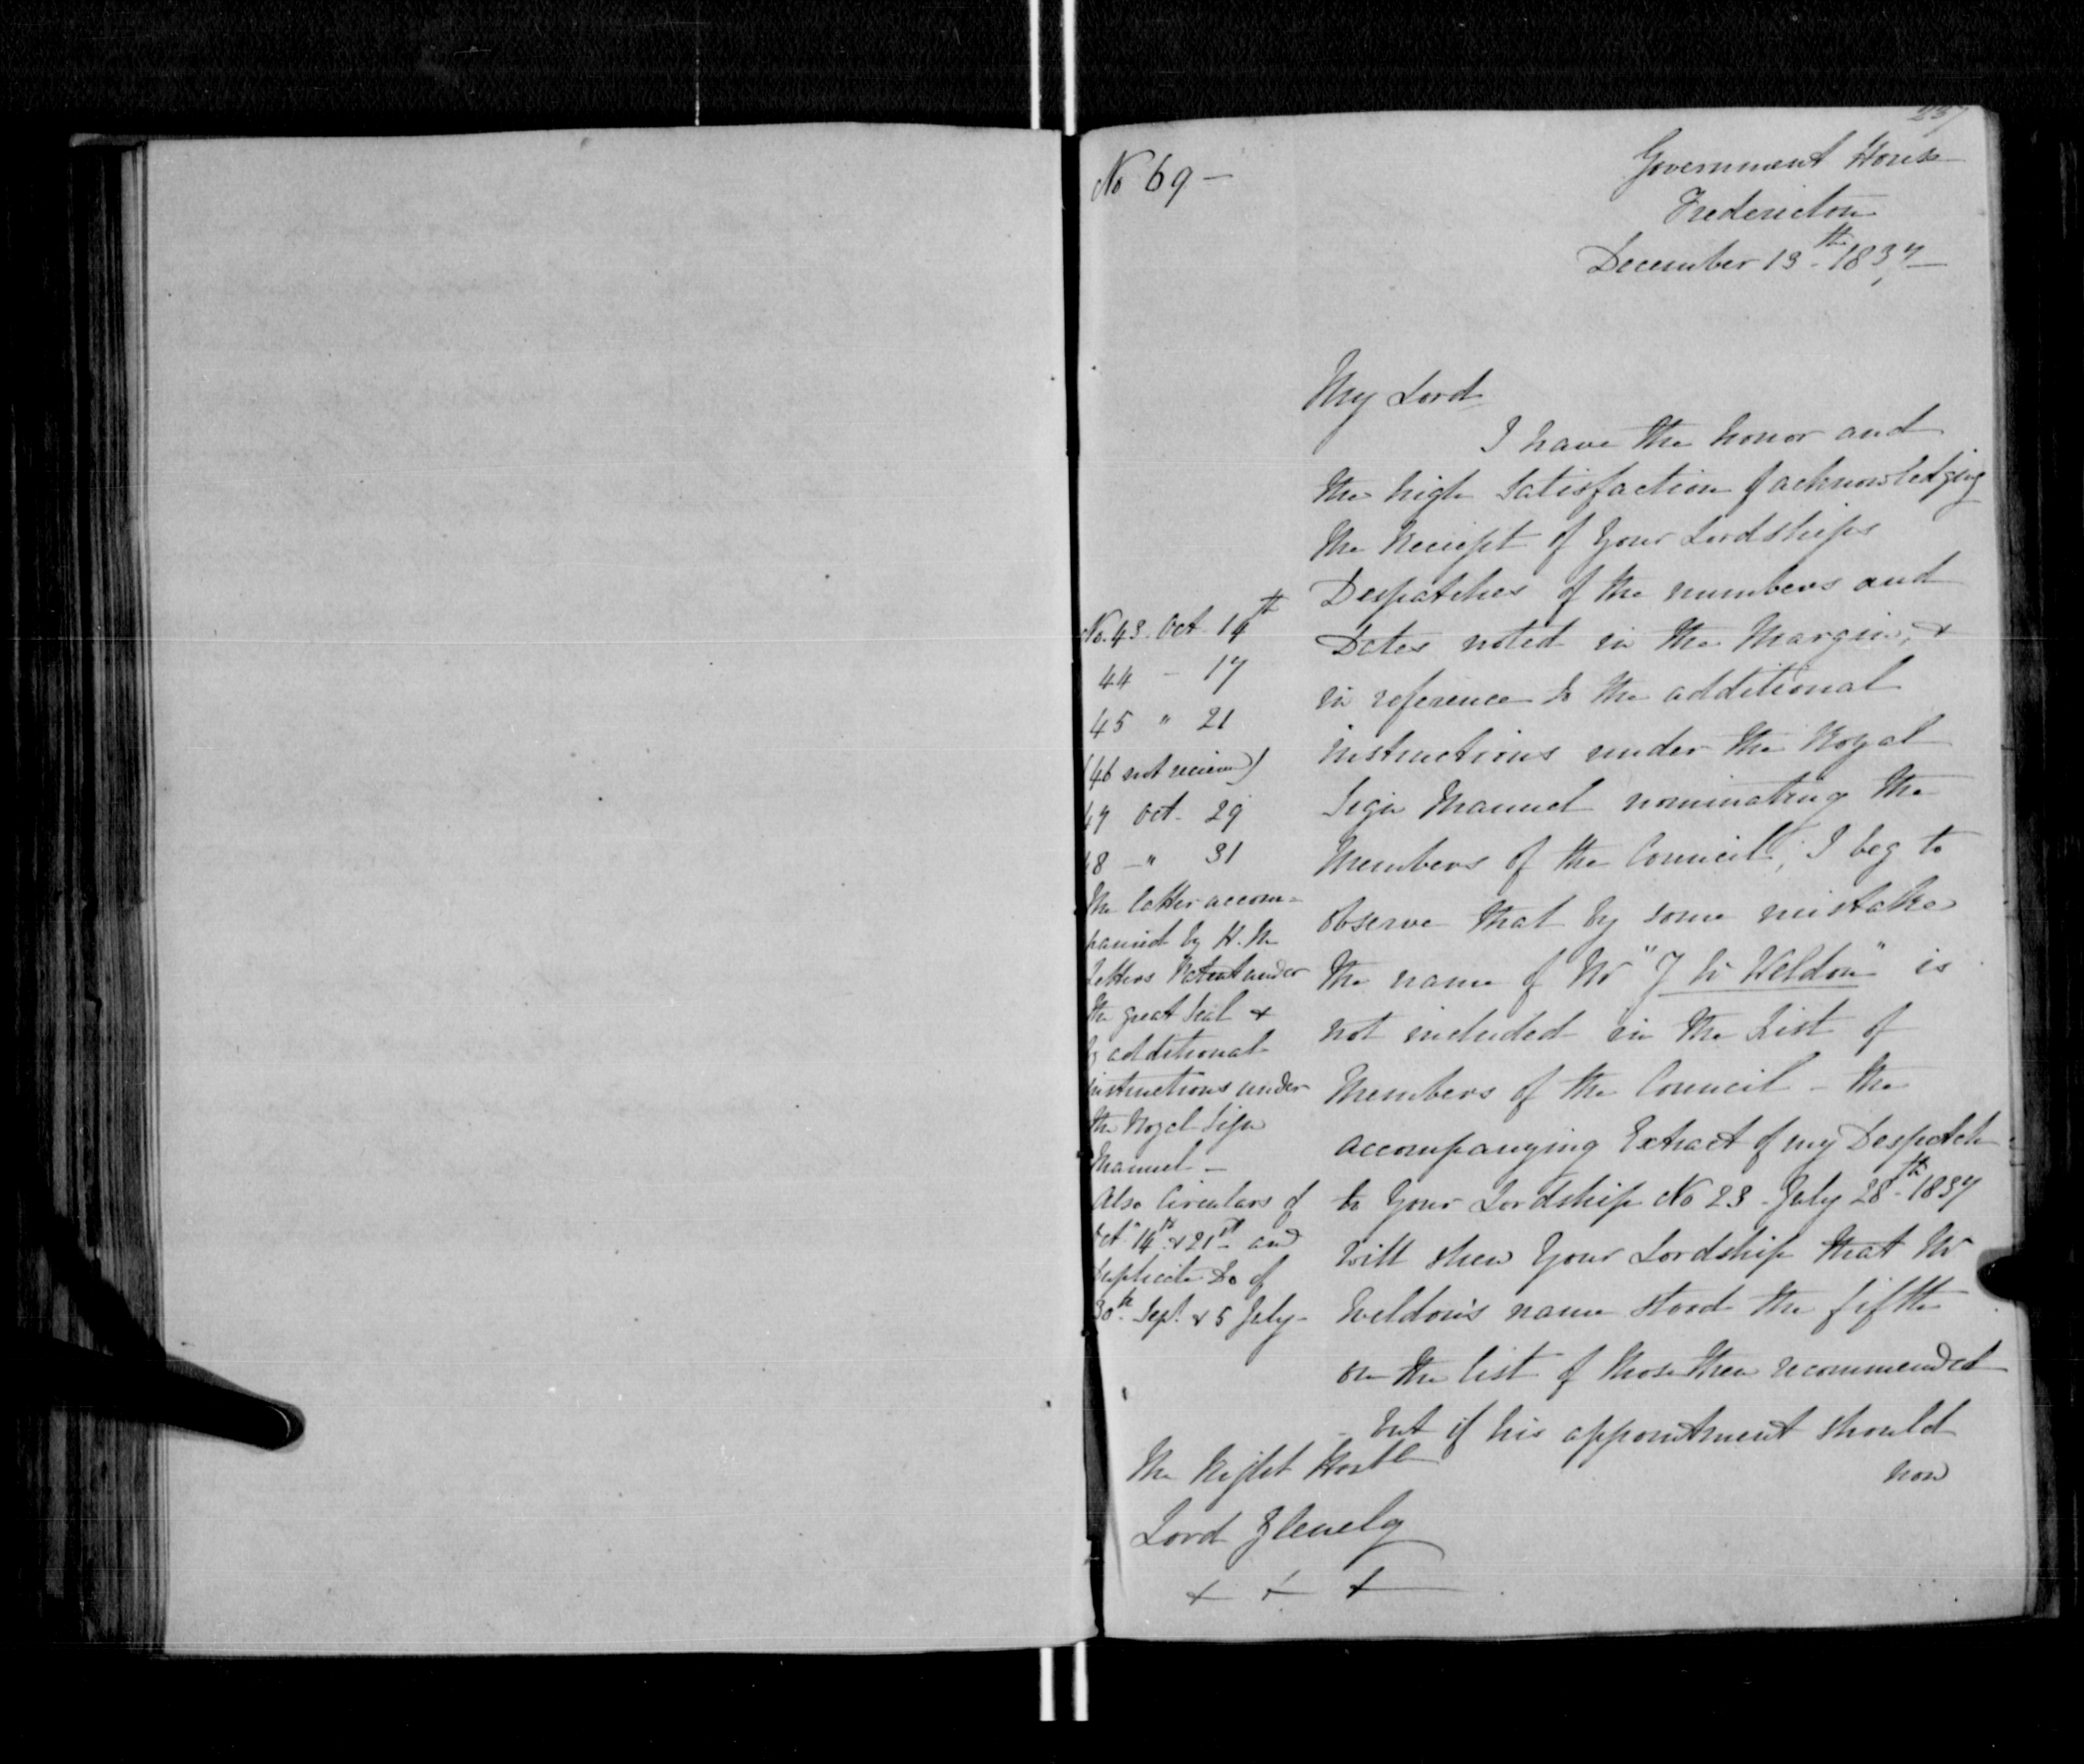 No 69 -
Government House
Fredericton
December 13th 1837
My Lord
I have the honor and
the high satisfaction of acknowledging
the Receipt of Your Lordships
Despatches of the numbers and
Dates noted in the Margin, &
in reference to the additional
instructions under the Royal
Sign Manuel nominating the
Members of the Council, I beg to
observe that by some mistake
the name of Mr "J W Weldon" is
not included in the List of
Members of the Council - the
accompanying Extract of my Despatch
to Your Lordship No 23 - July 28th 1837
will shew Your Lordship that Mr
Weldon's name stood the fifth
on the list of those then recommended
- but if his appointment should
now
No. 43 Oct 14th
44 - 17
45 " 21
(46 not received)
47 Oct. 29
48 - " 31
The latter accom=
panied by H. M
Letters Patent under
the great Seal &
by additional
instructions under
the Royal Sign
Manuel -
Also Circulars of
Oct 14th & 21st and
Duplicate Do of
30th Sept. & 5 July -
The Right Honble
Lord Glenelg
+ + +